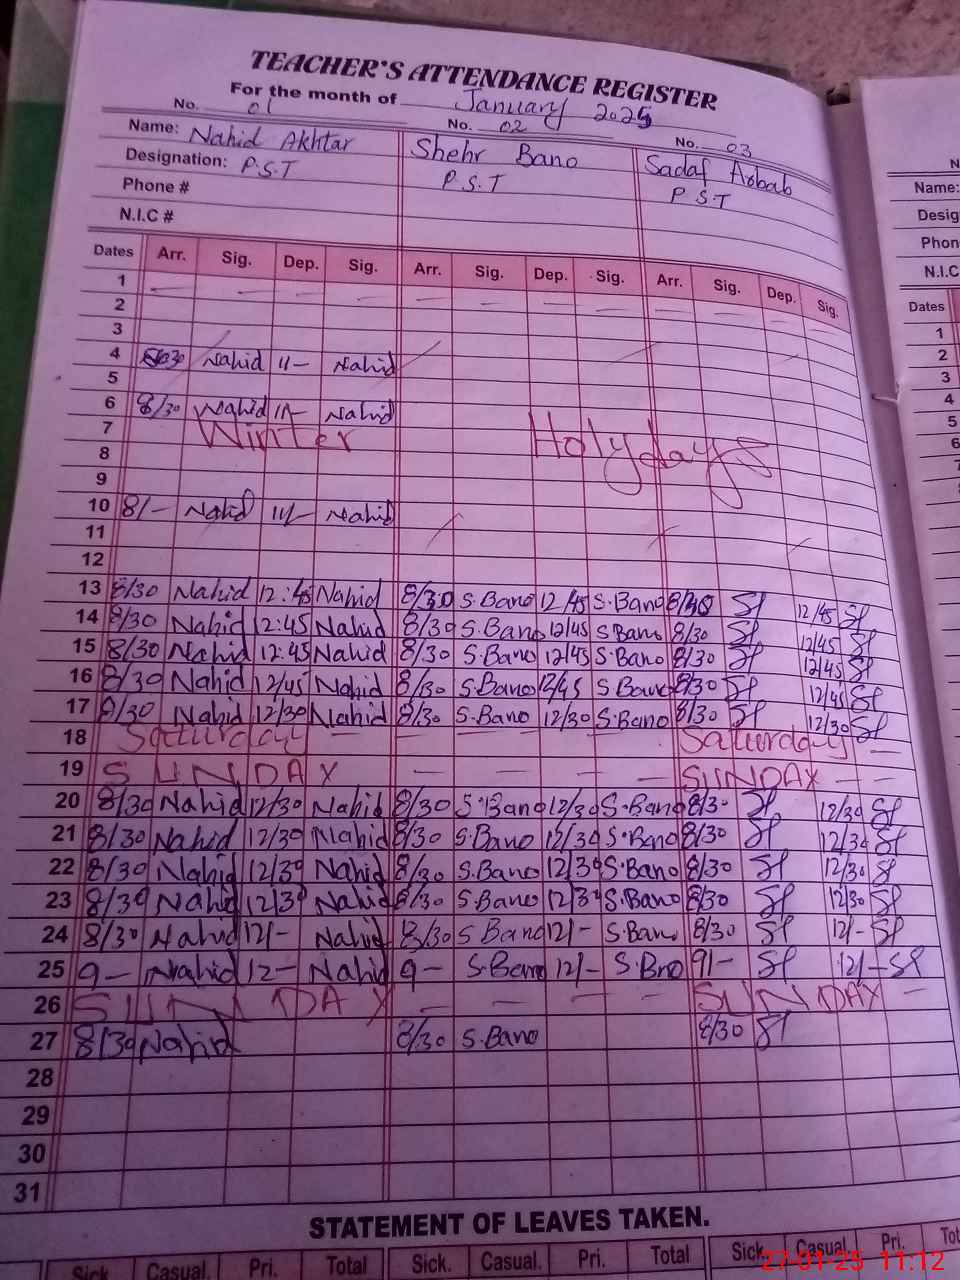 TEACHER'S ATTENDANCE REGISTER
For the month of January 2025
No. 01 No. 02 No. 03
Name: Nahid Akhtar Shehr Bano Sadaf Arbab
Designation: P.S.T P.S.T P.S.T
Phone #
N.I.C #
Dates Arr. Sig. Dep. Sig. Arr. Sig. Dep. Sig. Arr. Sig. Dep. Sig.
1
2
3
4 Nahid 11- Nahid
5
6 8/30 Nahid 11- Nahid
7 Winter Holydays
8
9
10 8/- Nahid 11/- Nahid
11
12
13 8/30 Nahid 12:45 Nahid 8/30 S.Bano 12/45 S.Bano 8/30 12/45
14 8/30 Nahid 12:45 Nahid 8/30 S.Bano 12/45 S Bano 8/30 12/45
15 8/30 Nahid 12:45 Nahid 8/30 S.Bano 12/45 S.Bano 8/30 12/45
16 8/30 Nahid 12/45 Nahid 8/30 S.Bano 12/45 S.Bano 8/30 12/45
17 8/30 Nahid 12/30 Nahid 8/30 S.Bano 12/30 S.Bano 8/30 12/30
18 Saturday Saturday
19 SUNDAY SUNDAY
20 8/30 Nahid 12/30 Nahid 8/30 S.Bano 12/30 S.Bano 8/30 12/30
21 8/30 Nahid 12/30 Nahid 8/30 S.Bano 12/30 S.Bano 8/30 12/30
22 8/30 Nahid 12/30 Nahid 8/30 S.Bano 12/30 S.Bano 8/30 12/30
23 8/30 Nahid 12/30 Nahid 8/30 S.Bano 12/30 S.Bano 8/30 12/30
24 8/30 Nahid 12/- Nahid 8/30 S Bano 12/- S.Bano 8/30 12/-
25 9- Nahid 12- Nahid 9- S.Bano 12/- S.Bno 9/- 12/-
26 SUNDAY SUNDAY
27 8/30 Nahid 8/30 S.Bano 8/30
28
29
30
31
STATEMENT OF LEAVES TAKEN.
Sick. Casual. Pri. Total Sick. Casual. Pri. Total Sick. Casual. Pri. Tot
N
Name:
Desig
Phon
N.I.C
Dates
1
2
3
4
5
6
7
27-01-25 11:12